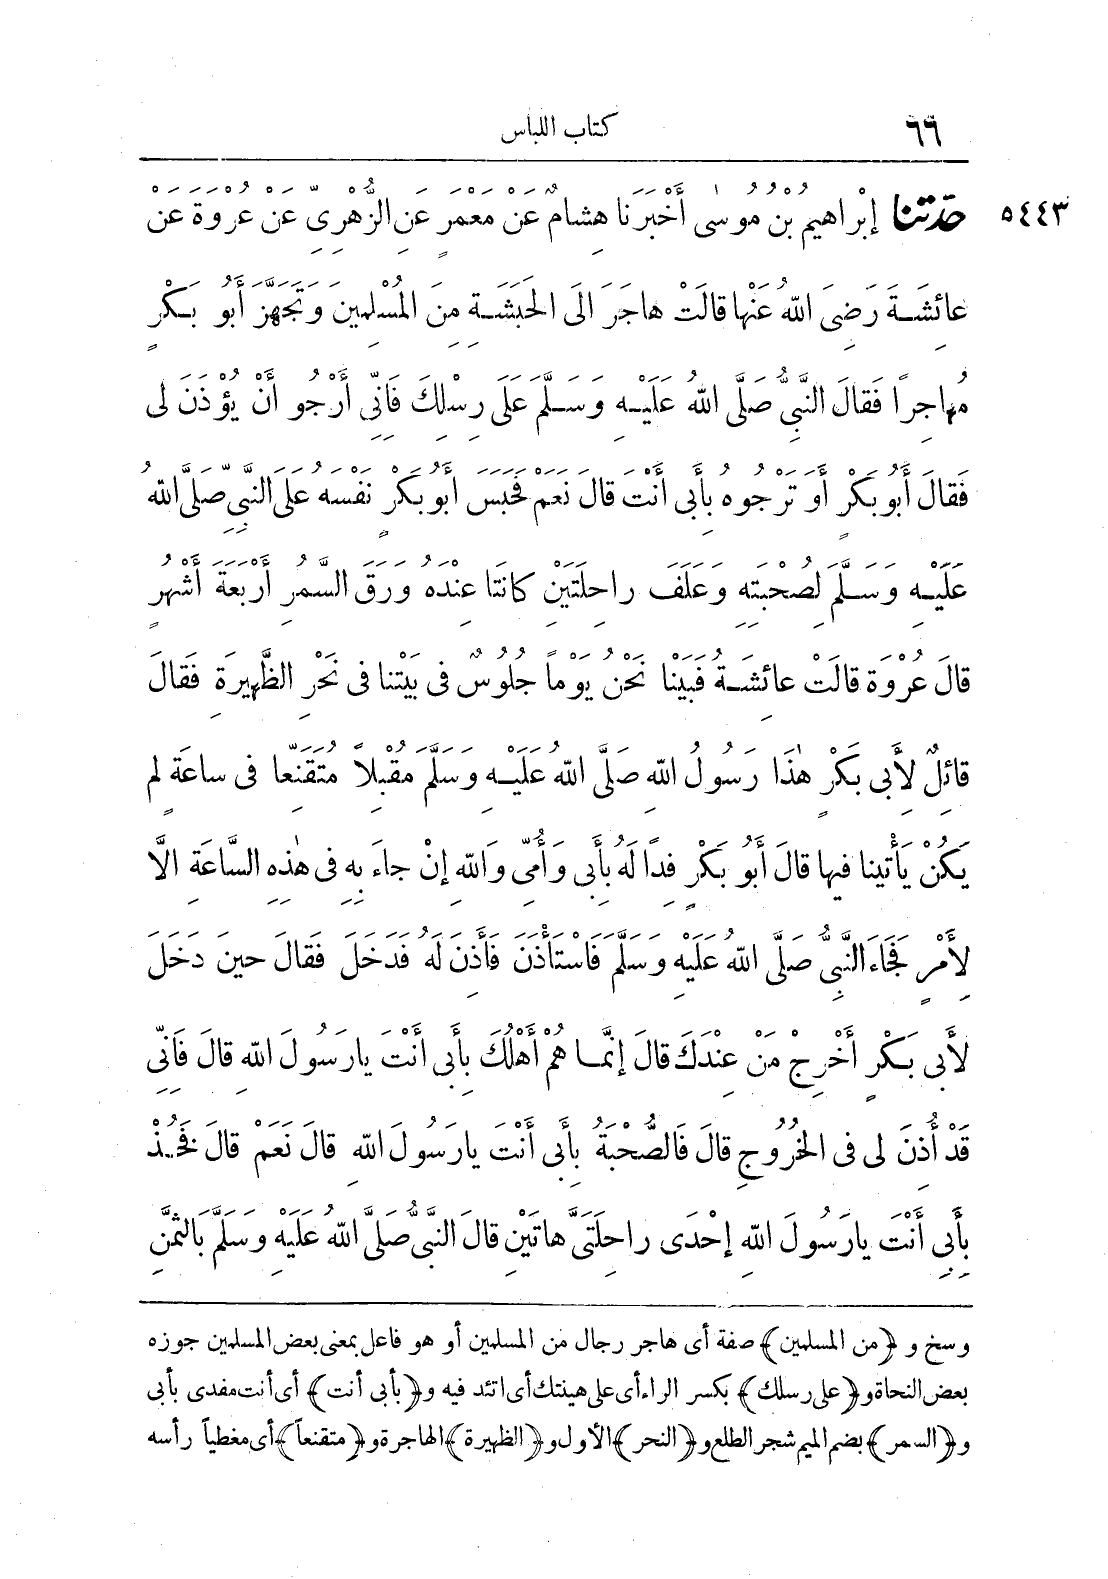 ٦٦ كتاب اللباس
٥٤٤٣ حَدَّثَنَا إِبْرَاهِيمُ بْنُ مُوسَى أَخْبَرَنَا هِشَامٌ عَنْ مَعْمَرٍ عَنِ الزُّهْرِىِّ عَنْ عُرْوَةَ عَنْ
عَائِشَةَ رَضِىَ اللهُ عَنْهَا قَالَتْ هَاجَرَ الَى الْحَبَشَةِ مِنَ الْمُسْلِمِينَ وَتَجَهَّزَ أَبُو بَكْرٍ
مُهَاجِرًا فَقَالَ النَّبِىُّ صَلَّى اللهُ عَلَيْهِ وَسَلَّمَ عَلَى رِسْلِكَ فَانِّى أَرْجُو أَنْ يُؤْذَنَ لِى
فَقَالَ أَبُو بَكْرٍ أَوَ تَرْجُوهُ بِأَبِى أَنْتَ قَالَ نَعَمْ فَحَبَسَ أَبُو بَكْرٍ نَفْسَهُ عَلَى النَّبِىِّ صَلَّى اللهُ
عَلَيْهِ وَسَلَّمَ لِصُحْبَتِهِ وَعَلَفَ رَاحِلَتَيْنِ كَانَتَا عِنْدَهُ وَرَقَ السَّمُرِ أَرْبَعَةَ أَشْهُرٍ
قَالَ عُرْوَةُ قَالَتْ عَائِشَةُ فَبَيْنَا نَحْنُ يَوْمًا جُلُوسٌ فِى بَيْتِنَا فِى نَحْرِ الظَّهِيرَةِ فَقَالَ
قَائِلٌ لِأَبِى بَكْرٍ هٰذَا رَسُولُ اللهِ صَلَّى اللهُ عَلَيْهِ وَسَلَّمَ مُقْبِلًا مُتَقَنِّعًا فِى سَاعَةٍ لَمْ
يَكُنْ يَأْتِينَا فِيهَا قَالَ أَبُو بَكْرٍ فِدًا لَهُ بِأَبِى وَأُمِّى وَاللهِ إِنْ جَاءَ بِهِ فِى هٰذِهِ السَّاعَةِ الَّا
لِأَمْرٍ فَجَاءَ النَّبِىُّ صَلَّى اللهُ عَلَيْهِ وَسَلَّمَ فَاسْتَأْذَنَ فَأَذِنَ لَهُ فَدَخَلَ فَقَالَ حِينَ دَخَلَ
لِأَبِى بَكْرٍ أَخْرِجْ مَنْ عِنْدَكَ قَالَ إِنَّمَا هُمْ أَهْلُكَ بِأَبِى أَنْتَ يَارَسُولَ اللهِ قَالَ فَانِّى
قَدْ أُذِنَ لِى فِى الْخُرُوجِ قَالَ فَالصُّحْبَةُ بِأَبِى أَنْتَ يَارَسُولَ اللهِ قَالَ نَعَمْ قَالَ فَخُذْ
بِأَبِى أَنْتَ يَارَسُولَ اللهِ إِحْدَى رَاحِلَتَىَّ هَاتَيْنِ قَالَ النَّبِىُّ صَلَّى اللهُ عَلَيْهِ وَسَلَّمَ بِالثَّمَنِ
وسخ و ﴿من المسلمين﴾ صفة أى هاجر رجال من المسلمين أو هو فاعل بمعنى بعض المسلمين جوزه
بعض النحاة و﴿على رسلك﴾ بكسر الراء أى على هينتك أى اتئد فيه و﴿بأبى أنت﴾ أى أنت مفدى بأبى
و﴿السمر﴾ بضم الميم شجر الطلع و﴿النحر﴾ الأول و﴿الظهيرة﴾ الهاجرة و﴿متقنعاً﴾ أى مغطياً رأسه